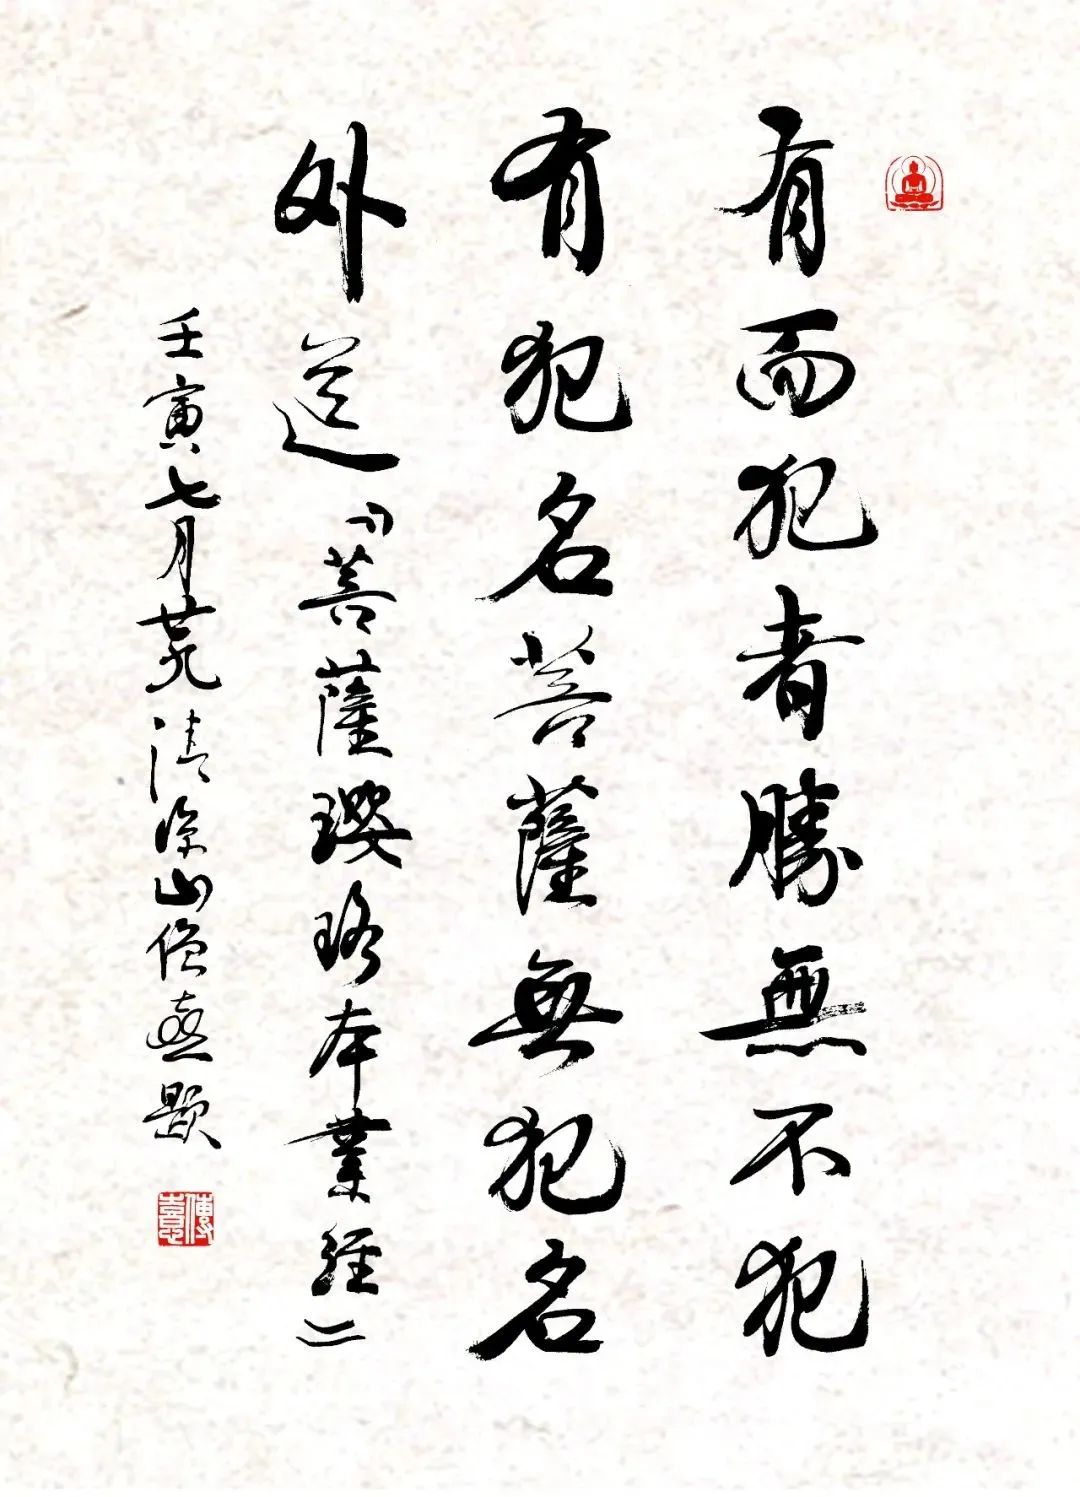 有而犯者勝無不犯
有犯名菩薩無犯名
外道『菩薩瓔珞本業經』
壬寅七月廿九清涼山僧憙題
傳憙